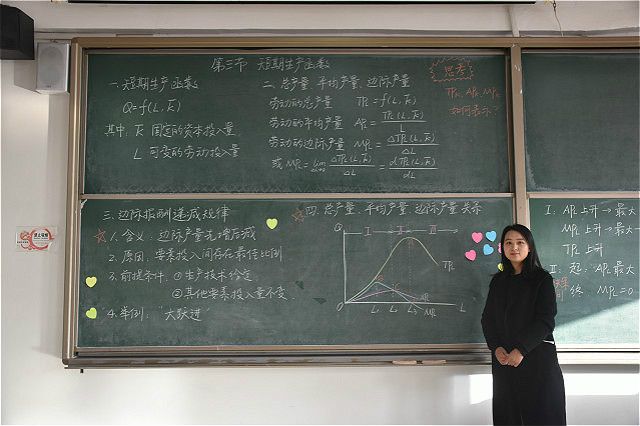 第三节 短期生产函数
一.短期生产函数
Q=f(L, K̄)
其中, K̄ 固定的资本投入量
L 可变的劳动投入量
二.总产量,平均产量,边际产量
劳动的总产量 TPL=f(L, K̄)
劳动的平均产量 APL=TPL(L, K̄)/L
劳动的边际产量 MPL=ΔTPL(L, K̄)/ΔL
或 MPL=lim ΔL→0 ΔTPL(L, K̄)/ΔL=dTPL(L, K̄)/dL
思考
TPL, APL, MPL
如何表示?
三.边际报酬递减规律
☆1.含义:边际产量先增后减
2.原因:要素投入间存在最佳比例
3.前提条件:①生产技术给定
②其他要素投入量不变
4.举例:"大跃进"
☆四.总产量,平均产量,边际产量关系
Q
Ⅰ Ⅱ Ⅲ
TPL
APL
MPL
O L1 L2 L3 L
Ⅰ: APL上升→最大
MPL上升→最大
TPL上升
Ⅱ: 起: APL最大
终: MPL=0